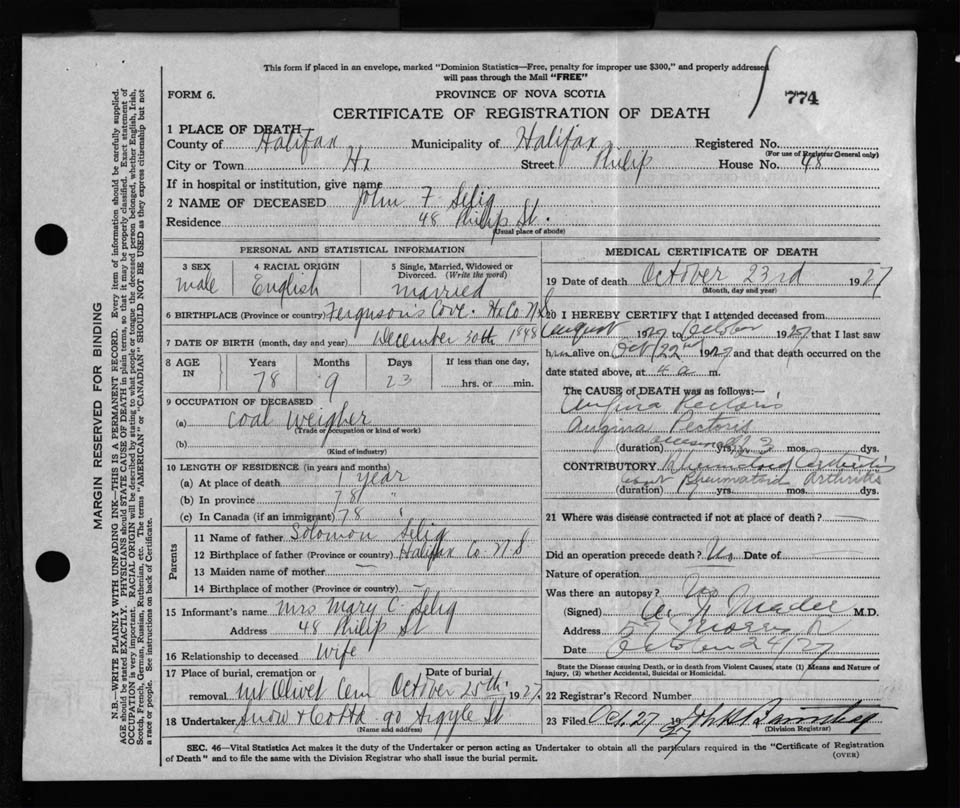 This form if placed in an envelope, marked "Dominion Statistics—Free, penalty for improper use $300," and properly addressed
will pass through the Mail "FREE"
FORM 6.
PROVINCE OF NOVA SCOTIA
774
CERTIFICATE OF REGISTRATION OF DEATH
1 PLACE OF DEATH—
County of Halifax Municipality of Halifax Registered No.
(For use of Registrar General only)
City or Town Hx Street Philip House No. 48
If in hospital or institution, give name
2 NAME OF DECEASED John F. Selig
Residence 48 Philip St.
(Usual place of abode)
PERSONAL AND STATISTICAL INFORMATION
3 SEX male
4 RACIAL ORIGIN English
5 Single, Married, Widowed or Divorced. (Write the word) married
6 BIRTHPLACE (Province or country) Ferguson's Cove. Hx Co N S
7 DATE OF BIRTH (month, day and year) December 30th 1848
8 AGE IN Years 78 Months 9 Days 23 If less than one day, hrs. or min.
9 OCCUPATION OF DECEASED
(a) coal weigher
(Trade or occupation or kind of work)
(b)
(Kind of industry)
10 LENGTH OF RESIDENCE (in years and months)
(a) At place of death 1 year
(b) In province 78 "
(c) In Canada (if an immigrant) 78 "
Parents
11 Name of father Solomon Selig
12 Birthplace of father (Province or country) Halifax Co. N.S
13 Maiden name of mother —
14 Birthplace of mother (Province or country) —
15 Informant's name Mrs Mary C. Selig
Address 48 Philip St
16 Relationship to deceased wife
17 Place of burial, cremation or removal Mt Olivet Cem Date of burial October 25th. 1927
18 Undertaker Snow & Co Ltd. 90 Argyle St
(Name and address)
MEDICAL CERTIFICATE OF DEATH
19 Date of death October 23rd 1927
(Month, day and year)
20 I HEREBY CERTIFY that I attended deceased from
August 1927 to October 1927 that I last saw
him alive on Oct 22nd 1927 and that death occurred on the
date stated above, at 4 a m.
The CAUSE of DEATH was as follows:—
Angina Pectoris
Angina Pectoris
(duration) yrs. 3 mos. dys.
CONTRIBUTORY Rheumatoid Arthritis
Rheumatoid Arthritis
(duration) yrs. mos. dys.
21 Where was disease contracted if not at place of death?
Did an operation precede death? No Date of
Nature of operation
Was there an autopsy? No
(Signed) Mader M.D.
Address Morris
Date October 24/27
State the Disease causing Death, or in death from Violent Causes, state (1) Means and Nature of
Injury, (2) whether Accidental, Suicidal or Homicidal.
22 Registrar's Record Number
23 Filed Oct. 27 1927
(Division Registrar)
SEC. 46—Vital Statistics Act makes it the duty of the Undertaker or person acting as Undertaker to obtain all the particulars required in the "Certificate of Registration
of Death" and to file the same with the Division Registrar who shall issue the burial permit.
(OVER)
MARGIN RESERVED FOR BINDING
N.B.—WRITE PLAINLY WITH UNFADING INK—THIS IS A PERMANENT RECORD. Every item of information should be carefully supplied.
AGE should be stated EXACTLY. PHYSICIANS should STATE CAUSE OF DEATH in plain terms, so that it may be properly classified. Exact statement of
OCCUPATION is very important. RACIAL ORIGIN will be described by stating to what people or tongue the deceased person belonged, whether English, Irish,
Scotch, French, German, Russian, Ruthenian, etc. The terms "AMERICAN" or "CANADIAN" SHOULD NOT BE USED as they express citizenship but not
a race or people. See instructions on back of Certificate.